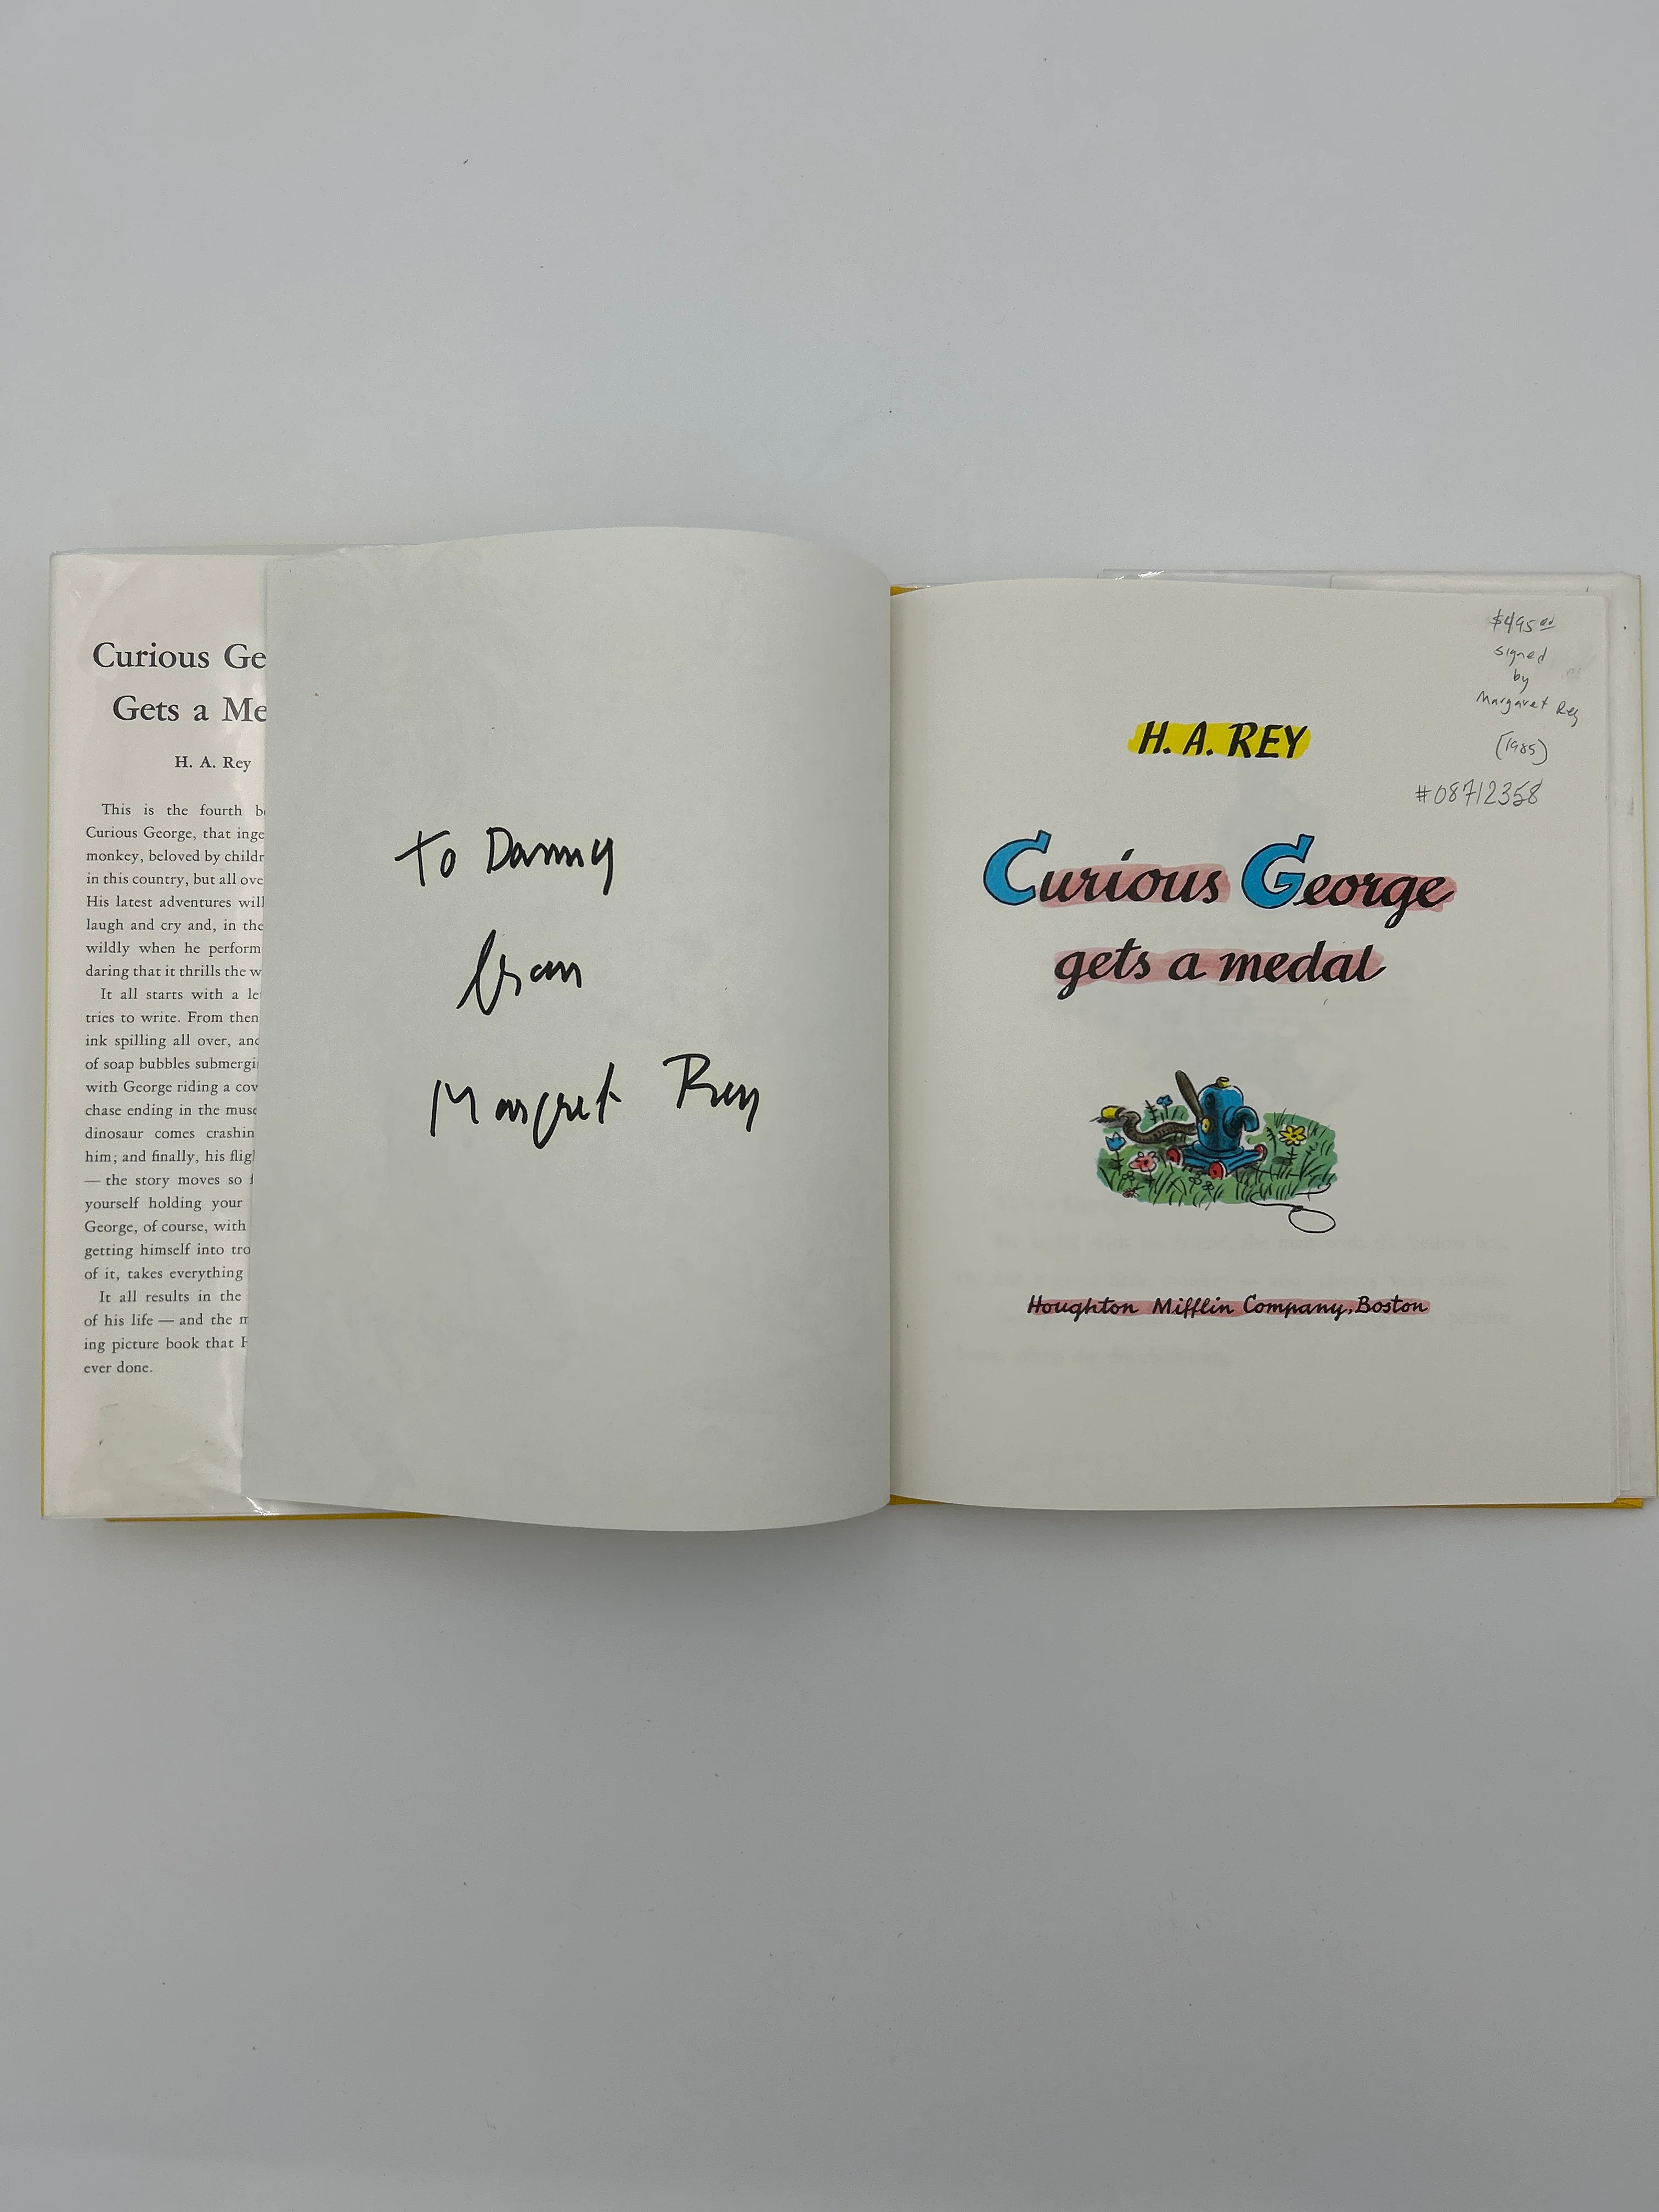 Curious Ge
Gets a Me
H. A. Rey
This is the fourth b
Curious George, that inge
monkey, beloved by childr
in this country, but all ove
His latest adventures will
laugh and cry and, in the
wildly when he perform
daring that it thrills the w
It all starts with a le
tries to write. From then
ink spilling all over, and
of soap bubbles submergi
with George riding a cov
chase ending in the muse
dinosaur comes crashin
him; and finally, his flig
— the story moves so f
yourself holding your
George, of course, with
getting himself into tro
of it, takes everything
It all results in the
of his life — and the m
ing picture book that H
ever done.
To Danny
from
Margret Rey
$495.00
signed
by
Margaret Rey
(1985)
#08712358
H. A. REY
Curious George
gets a medal
Houghton Mifflin Company, Boston